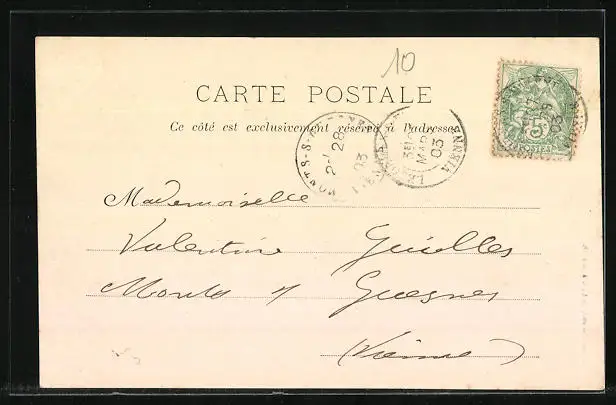 10
CARTE POSTALE
Ce côté est exclusivement réservé à l'adresse
MONTS-S-GUESNES
28
03
VIENNE
MARS
03
5c
POSTES
Mademoiselle
Valentine Guielles
Monts s/ Guesnes
(Vienne)